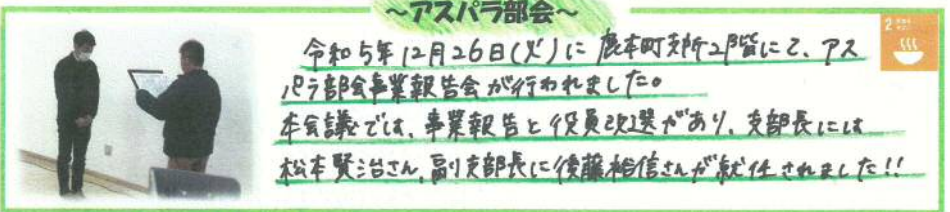 ～アスパラ部会～
令和5年12月26日(火)に鹿本町支所2階にて、アス
パラ部会事業報告会が行われました。
本会議では、事業報告と役員改選があり、支部長には
松本賢治さん、副支部長に後藤裕信さんが就任されました!!
2